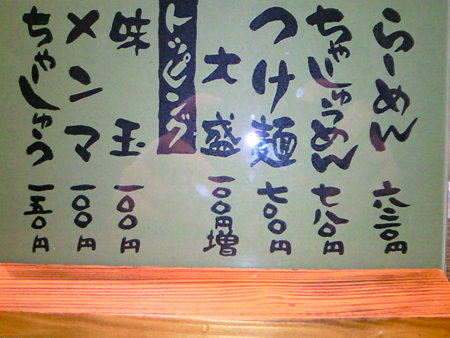 らーめん 六三〇円
ちゃーしゅーめん 七八〇円
つけ麺 七〇〇円
大盛 一〇〇円増
トッピング
味玉 一〇〇円
メンマ 一〇〇円
ちゃーしゅう 一五〇円